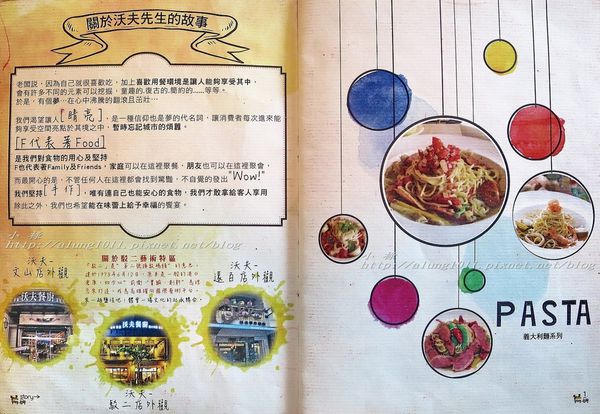 關於沃夫先生的故事
老闆說，因為自己就很喜歡吃，加上喜歡用餐環境是讓人能夠享受其中，
會有許多不同的元素可以挖掘，童趣的.復古的.簡約的......等等。
於是，有個夢...在心中沸騰的翻滾且茁壯...
我們渴望讓人[晴亮]，是一種信仰也是夢的代名詞，讓消費者每次進來能
夠享受空間亮點於其境之中，暫時忘記城市的煩囂。
[F代表著Food]
是我們對食物的用心及堅持
F也代表著Family及Friends，家庭可以在這裡聚餐，朋友也可以在這裡聚會，
而最開心的是，不管任何人在這裡都會找到驚豔，不自覺的發出"Wow!"
我們堅持[手作]，唯有連自己也能安心的食物，我們才敢拿給客人享用
除此之外，我們也希望能在味蕾上給予幸福的饗宴。
http://alung1011.pixnet.net/blog
沃夫-
文山店外觀
關於駁二藝術特區
沃夫-
遠百店外觀
沃夫餐廚
沃夫餐廚
沃夫-
駁二店外觀
story
http://alung1011.pixnet.net/blog
PASTA
義大利麵系列
1